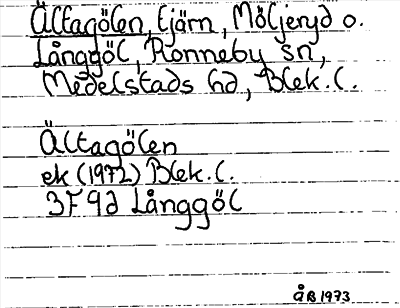 Ältagölen, tjärn, Möljeryd o.
Långgöl, Ronneby sn,
Medelstads hd, Blek. l.
Ältagölen
ek (1972) Blek. l.
3F 9d Långgöl
ÅB 1973